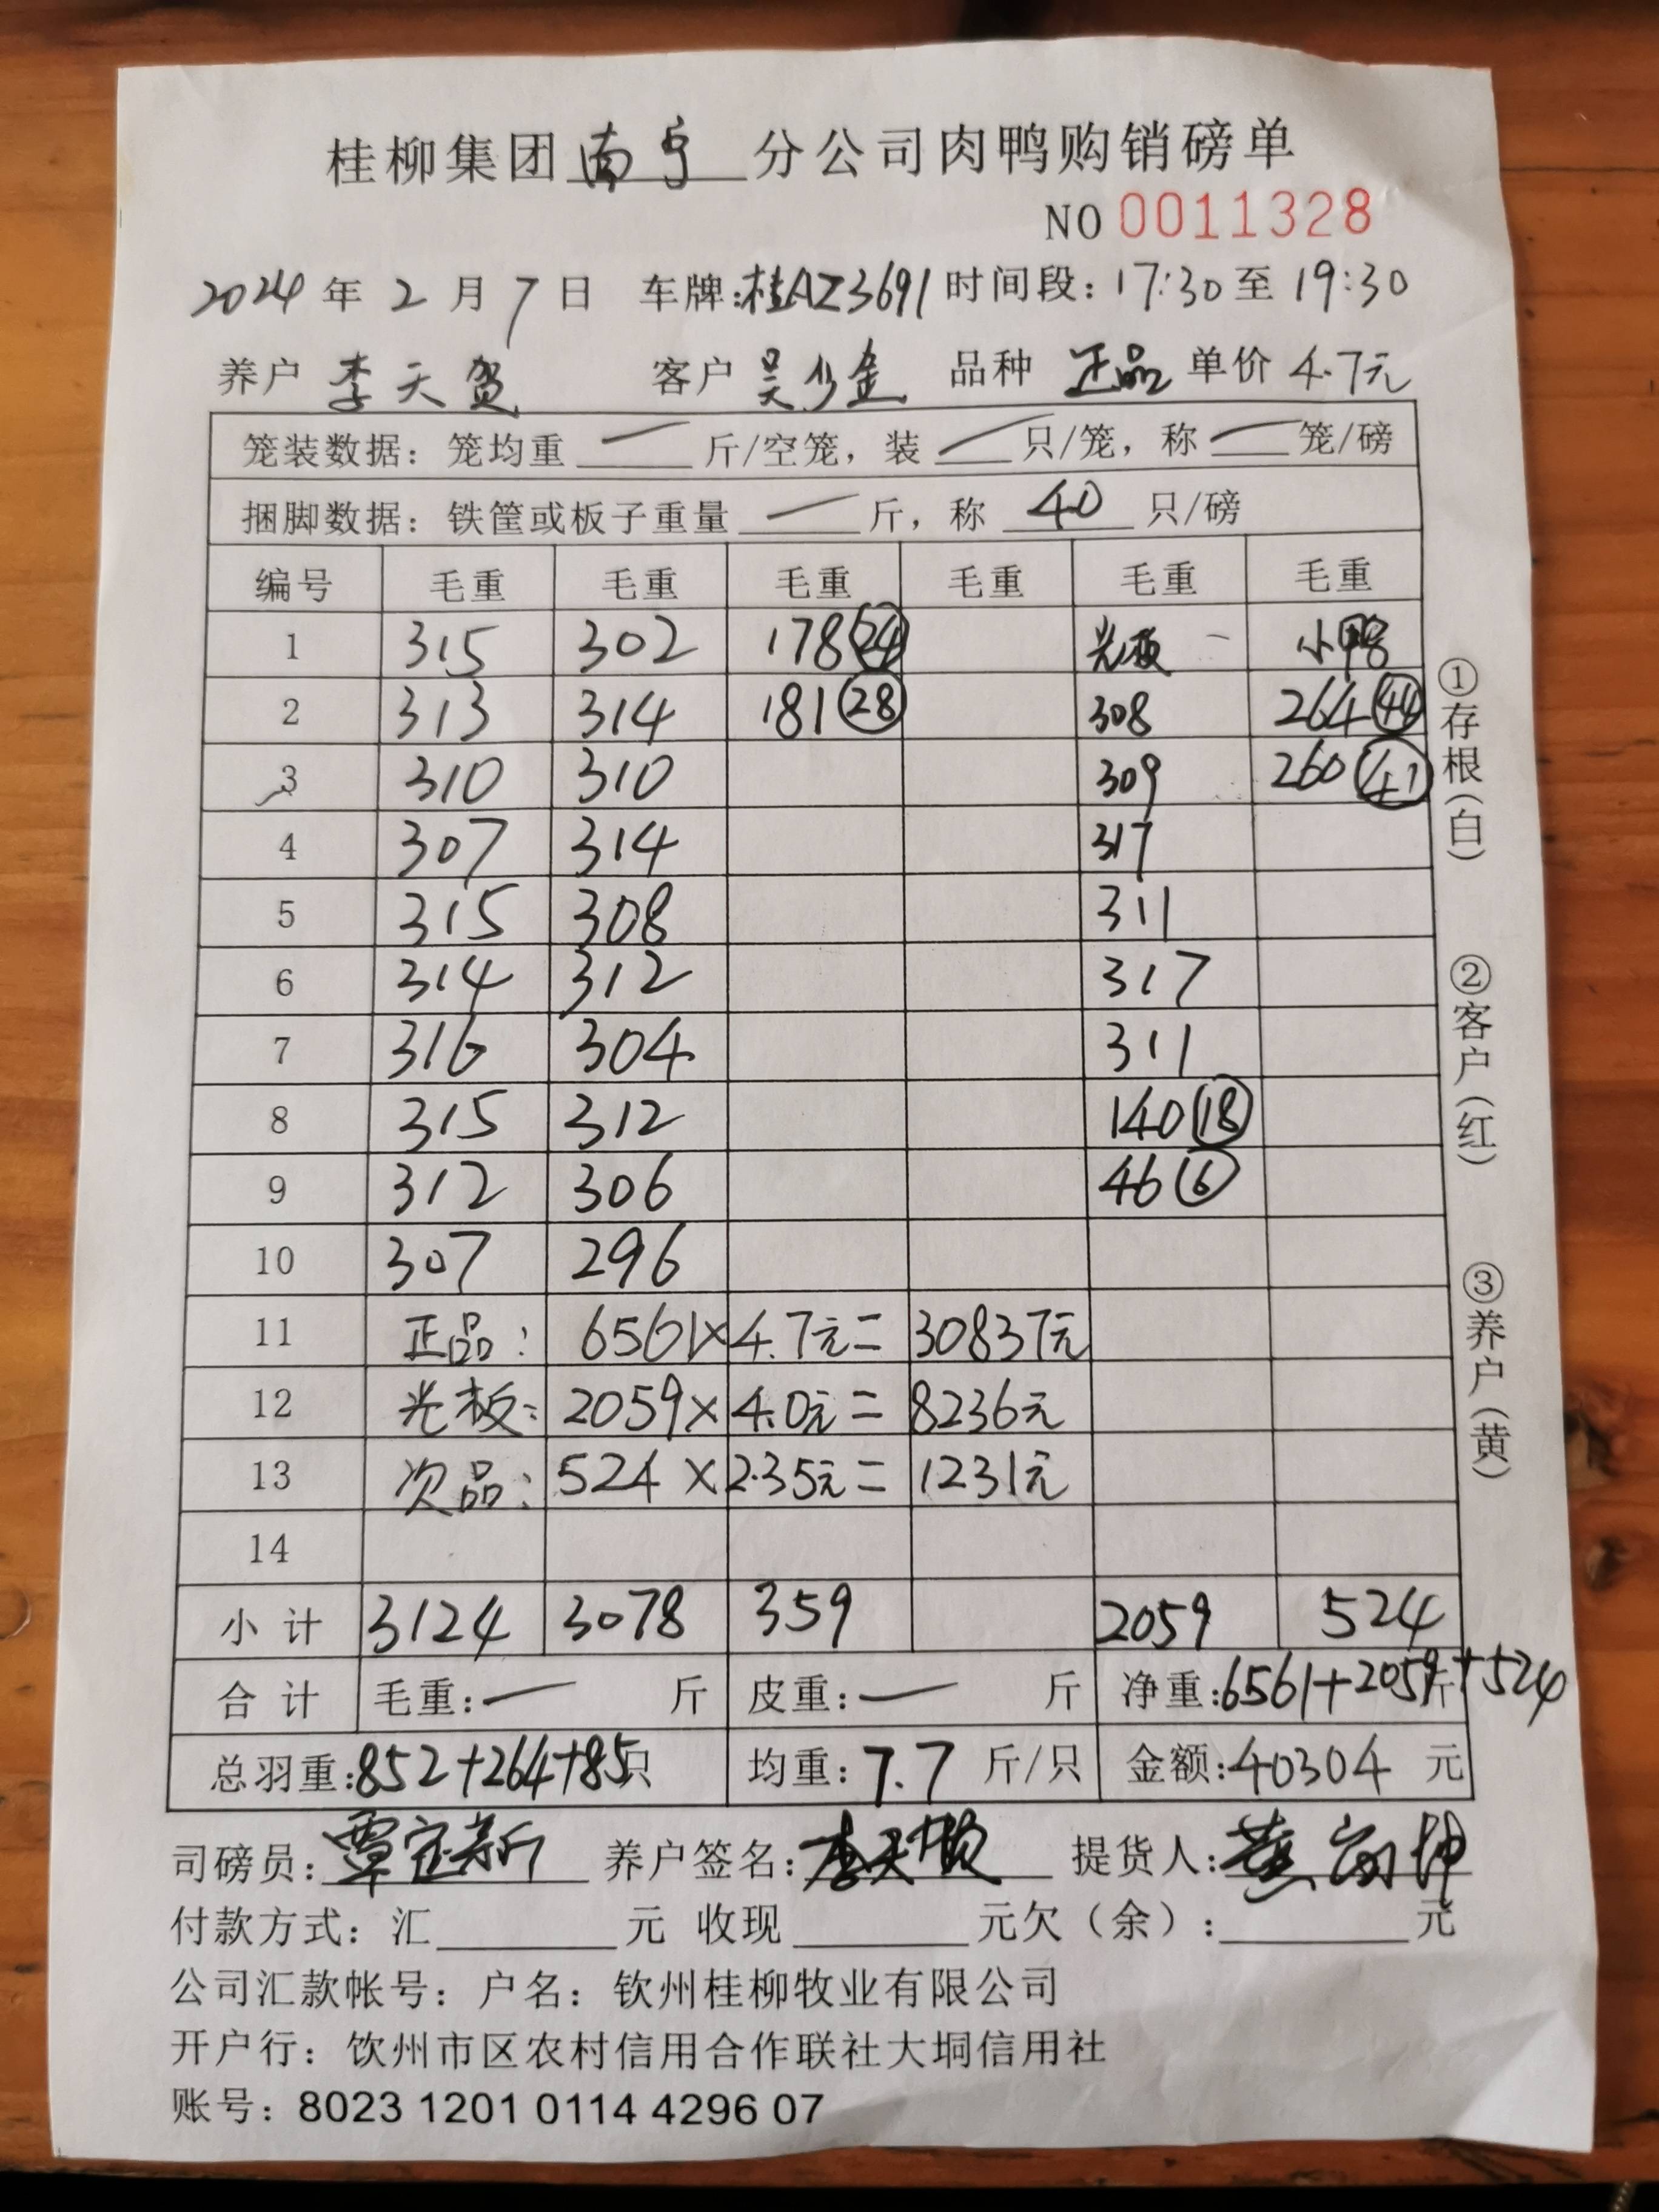 桂柳集团南宁分公司肉鸭购销磅单
NO 0011328
2024年2月7日 车牌:桂AZ3691 时间段:17:30至19:30
养户 李天贺 客户 吴少金 品种 正品 单价 4.7元
笼装数据:笼均重 — 斤/空笼,装 — 只/笼,称 — 笼/磅
捆脚数据:铁筐或板子重量 — 斤,称 40 只/磅
编号 毛重 毛重 毛重 毛重 毛重 毛重
1 315 302 178(24) 光板 小鸭
2 313 314 181(28) 308 264(44)
3 310 310 309 260(41)
4 307 314 317
5 315 308 311
6 314 312 317
7 316 304 311
8 315 312 140(18)
9 312 306 46(6)
10 307 296
11 正品: 6561×4.7元=30837元
12 光板: 2059×4.0元=8236元
13 次品: 524×2.35元=1231元
14
小计 3124 3078 359 2059 524
合计 毛重:— 斤 皮重:— 斤 净重:6561+2059+524斤
总羽重:852+264+85只 均重:7.7斤/只 金额:40304元
司磅员: 养户签名: 提货人:
付款方式:汇 元 收现 元欠(余): 元
公司汇款帐号:户名:钦州桂柳牧业有限公司
开户行:钦州市区农村信用合作联社大垌信用社
账号:8023 1201 0114 4296 07
①存根(白)
②客户(红)
③养户(黄)